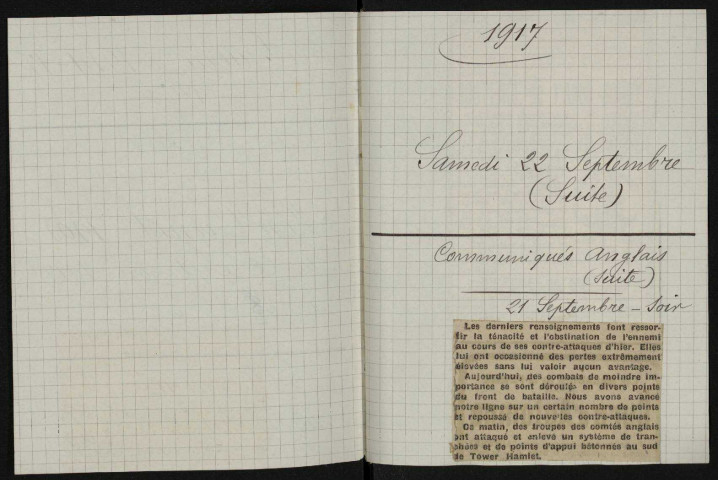 1917
Samedi 22 Septembre
(Suite)
Communiqués Anglais
(Suite)
21 Septembre - Soir
Les derniers renseignements font ressor-
tir la ténacité et l'obstination de l'ennemi
au cours de ses contre-attaques d'hier. Elles
lui ont occasionné des pertes extrêmement
élevées sans lui valoir aucun avantage.
Aujourd'hui, des combats de moindre im-
portance se sont déroulés en divers points
du front de bataille. Nous avons avancé
notre ligne sur un certain nombre de points
et repoussé de nouvelles contre-attaques.
Ce matin, des troupes des comtés anglais
ont attaqué et enlevé un système de tran-
chées et de points d'appui bétonnés au sud
de Tower Hamlet.